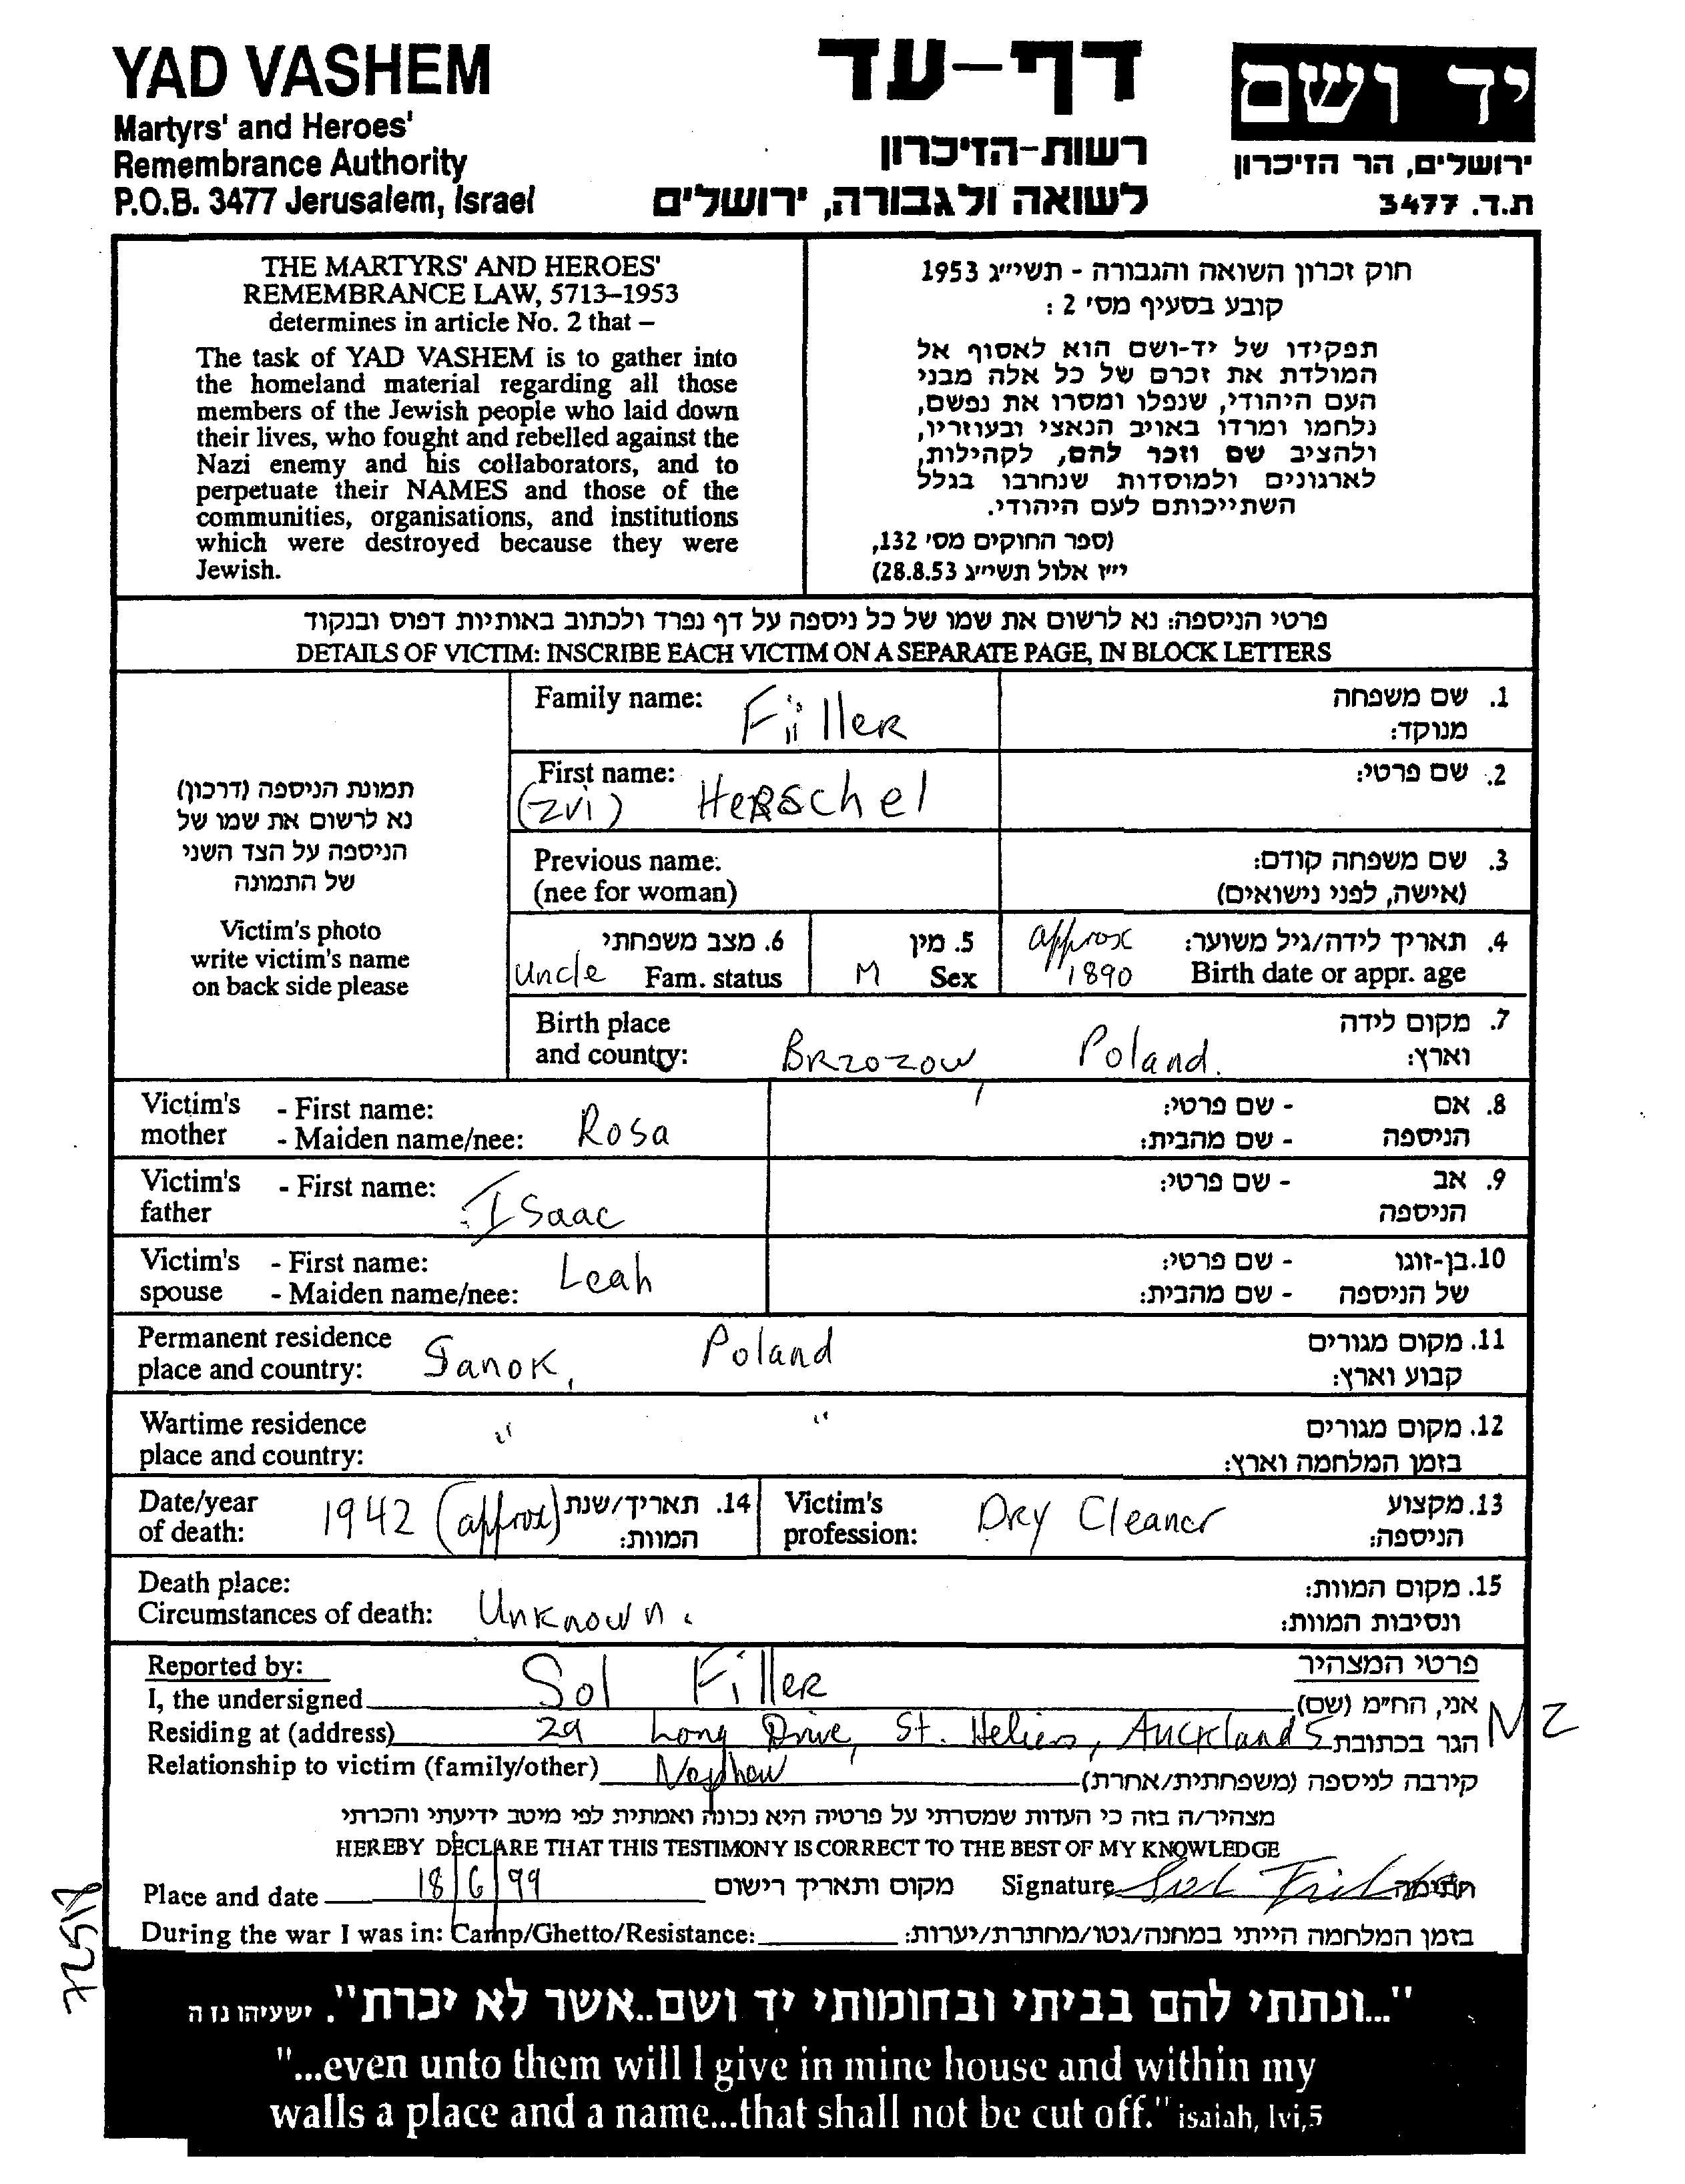 YAD VASHEM
Martyrs' and Heroes'
Remembrance Authority
P.O.B. 3477 Jerusalem, Israel
דף-עד
רשות-הזיכרון
לשואה ולגבורה, ירושלים
יד ושם
ירושלים, הר הזיכרון
ת.ד. 3477
THE MARTYRS' AND HEROES'
REMEMBRANCE LAW, 5713–1953
determines in article No. 2 that –
The task of YAD VASHEM is to gather into
the homeland material regarding all those
members of the Jewish people who laid down
their lives, who fought and rebelled against the
Nazi enemy and his collaborators, and to
perpetuate their NAMES and those of the
communities, organisations, and institutions
which were destroyed because they were
Jewish.
חוק זכרון השואה והגבורה - תשי״ג 1953
קובע בסעיף מס' 2 :
תפקידו של יד-ושם הוא לאסוף אל
המולדת את זכרם של כל אלה מבני
העם היהודי, שנפלו ומסרו את נפשם,
נלחמו ומרדו באויב הנאצי ובעוזריו,
ולהציב שם וזכר להם, לקהילות,
לארגונים ולמוסדות שנחרבו בגלל
השתייכותם לעם היהודי.
(ספר החוקים מס' 132,
י״ז אלול תשי״ג 28.8.53)
פרטי הניספה: נא לרשום את שמו של כל ניספה על דף נפרד ולכתוב באותיות דפוס ובנקוד
DETAILS OF VICTIM: INSCRIBE EACH VICTIM ON A SEPARATE PAGE, IN BLOCK LETTERS
תמונת הניספה (דרכון)
נא לרשום את שמו של
הניספה על הצד השני
של התמונה
Victim's photo
write victim's name
on back side please
Family name: Filler 1. שם משפחה
מנוקד:
First name: 2. שם פרטי:
(Zvi) Herschel
Previous name: 3. שם משפחה קודם:
(nee for woman) (אישה, לפני נישואים)
6. מצב משפחתי 5. מין approx 4. תאריך לידה/גיל משוער:
Uncle Fam. status M Sex 1890 Birth date or appr. age
Birth place 7. מקום לידה
and country: Brzozow, Poland. וארץ:
Victim's - First name: - שם פרטי: 8. אם
mother - Maiden name/nee: Rosa - שם מהבית: הניספה
Victim's - First name: - שם פרטי: 9. אב
father Isaac הניספה
Victim's - First name: Leah - שם פרטי: 10. בן-זוגו
spouse - Maiden name/nee: - שם מהבית: של הניספה
Permanent residence 11. מקום מגורים
place and country: Sanok, Poland קבוע וארץ:
Wartime residence " " 12. מקום מגורים
place and country: בזמן המלחמה וארץ:
Date/year 14. תאריך/שנת Victim's 13. מקצוע
of death: 1942 (approx) המוות: profession: Dry Cleaner הניספה:
Death place: 15. מקום המוות:
Circumstances of death: Unknown. ונסיבות המוות:
Reported by: פרטי המצהיר
I, the undersigned Sol Filler אני, הח״מ (שם)
Residing at (address) 29 Long Drive, St. Heliers, Auckland 5 הגר בכתובת NZ
Relationship to victim (family/other) Nephew קירבה לניספה (משפחתית/אחרת)
מצהיר/ה בזה כי העדות שמסרתי על פרטיה היא נכונה ואמתית לפי מיטב ידיעתי והכרתי
HEREBY DECLARE THAT THIS TESTIMONY IS CORRECT TO THE BEST OF MY KNOWLEDGE
Place and date 18/6/99 מקום ותאריך רישום Signature Sol Filler חתימה
During the war I was in: Camp/Ghetto/Resistance: בזמן המלחמה הייתי במחנה/גטו/מחתרת/יערות:
"...ונתתי להם בביתי ובחומותי יד ושם..אשר לא יכרת". ישעיהו נז ה
"...even unto them will I give in mine house and within my
walls a place and a name...that shall not be cut off." isaiah, lvi,5